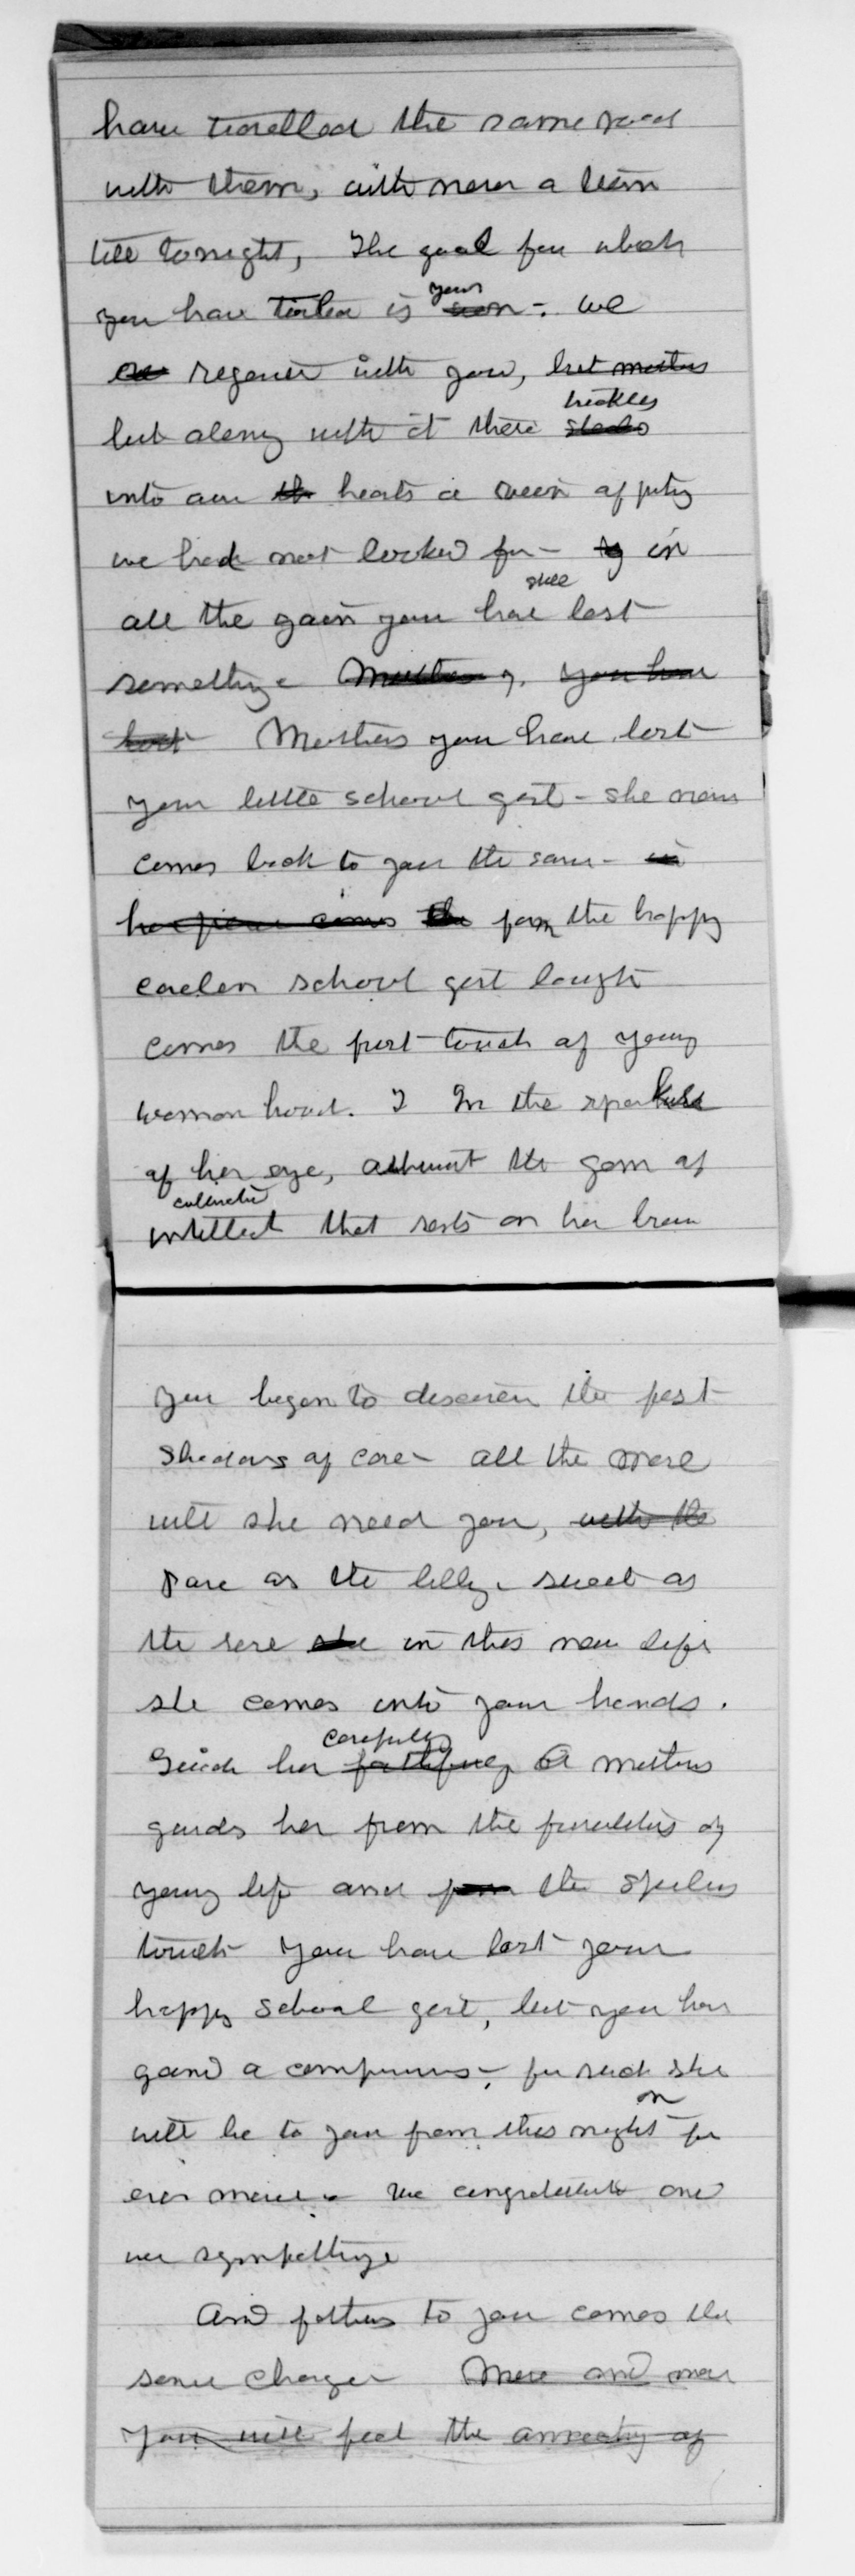 have travelled the same road
with them, with never a turn
till tonight, The goal for which
you have toiled is yours - we
rejoice with you, but mothers
but along with it there trickles
into our heats a vein of pity
we had not looked for - in
all the gain you have still lost
something. Mothers you have
lost Mothers you have lost
your little school girl - she never
comes back to you the same - in
the from the happy
careless school girl laugh
comes the first touch of young
woman hood. I In the sparkle
of her eye, athwart the gem of
cultivated intellect that rests on her brow
you began to discern the first
shadows of care - all the more
will she need you, with the
Pure as the lilly - sweet as
the rose she in this new life
she comes into your hands.
Guide her carefully faithfully O mothers
guards her from the of
young life and from the spoilers
touch You have lost your
happy school girl, but you have
gaind a companion - for such she
will be to you from this night on for
ever more - We congratulate and
we sympathize
And fathers to you comes the
same charge More and more
You will feel the anxiety of